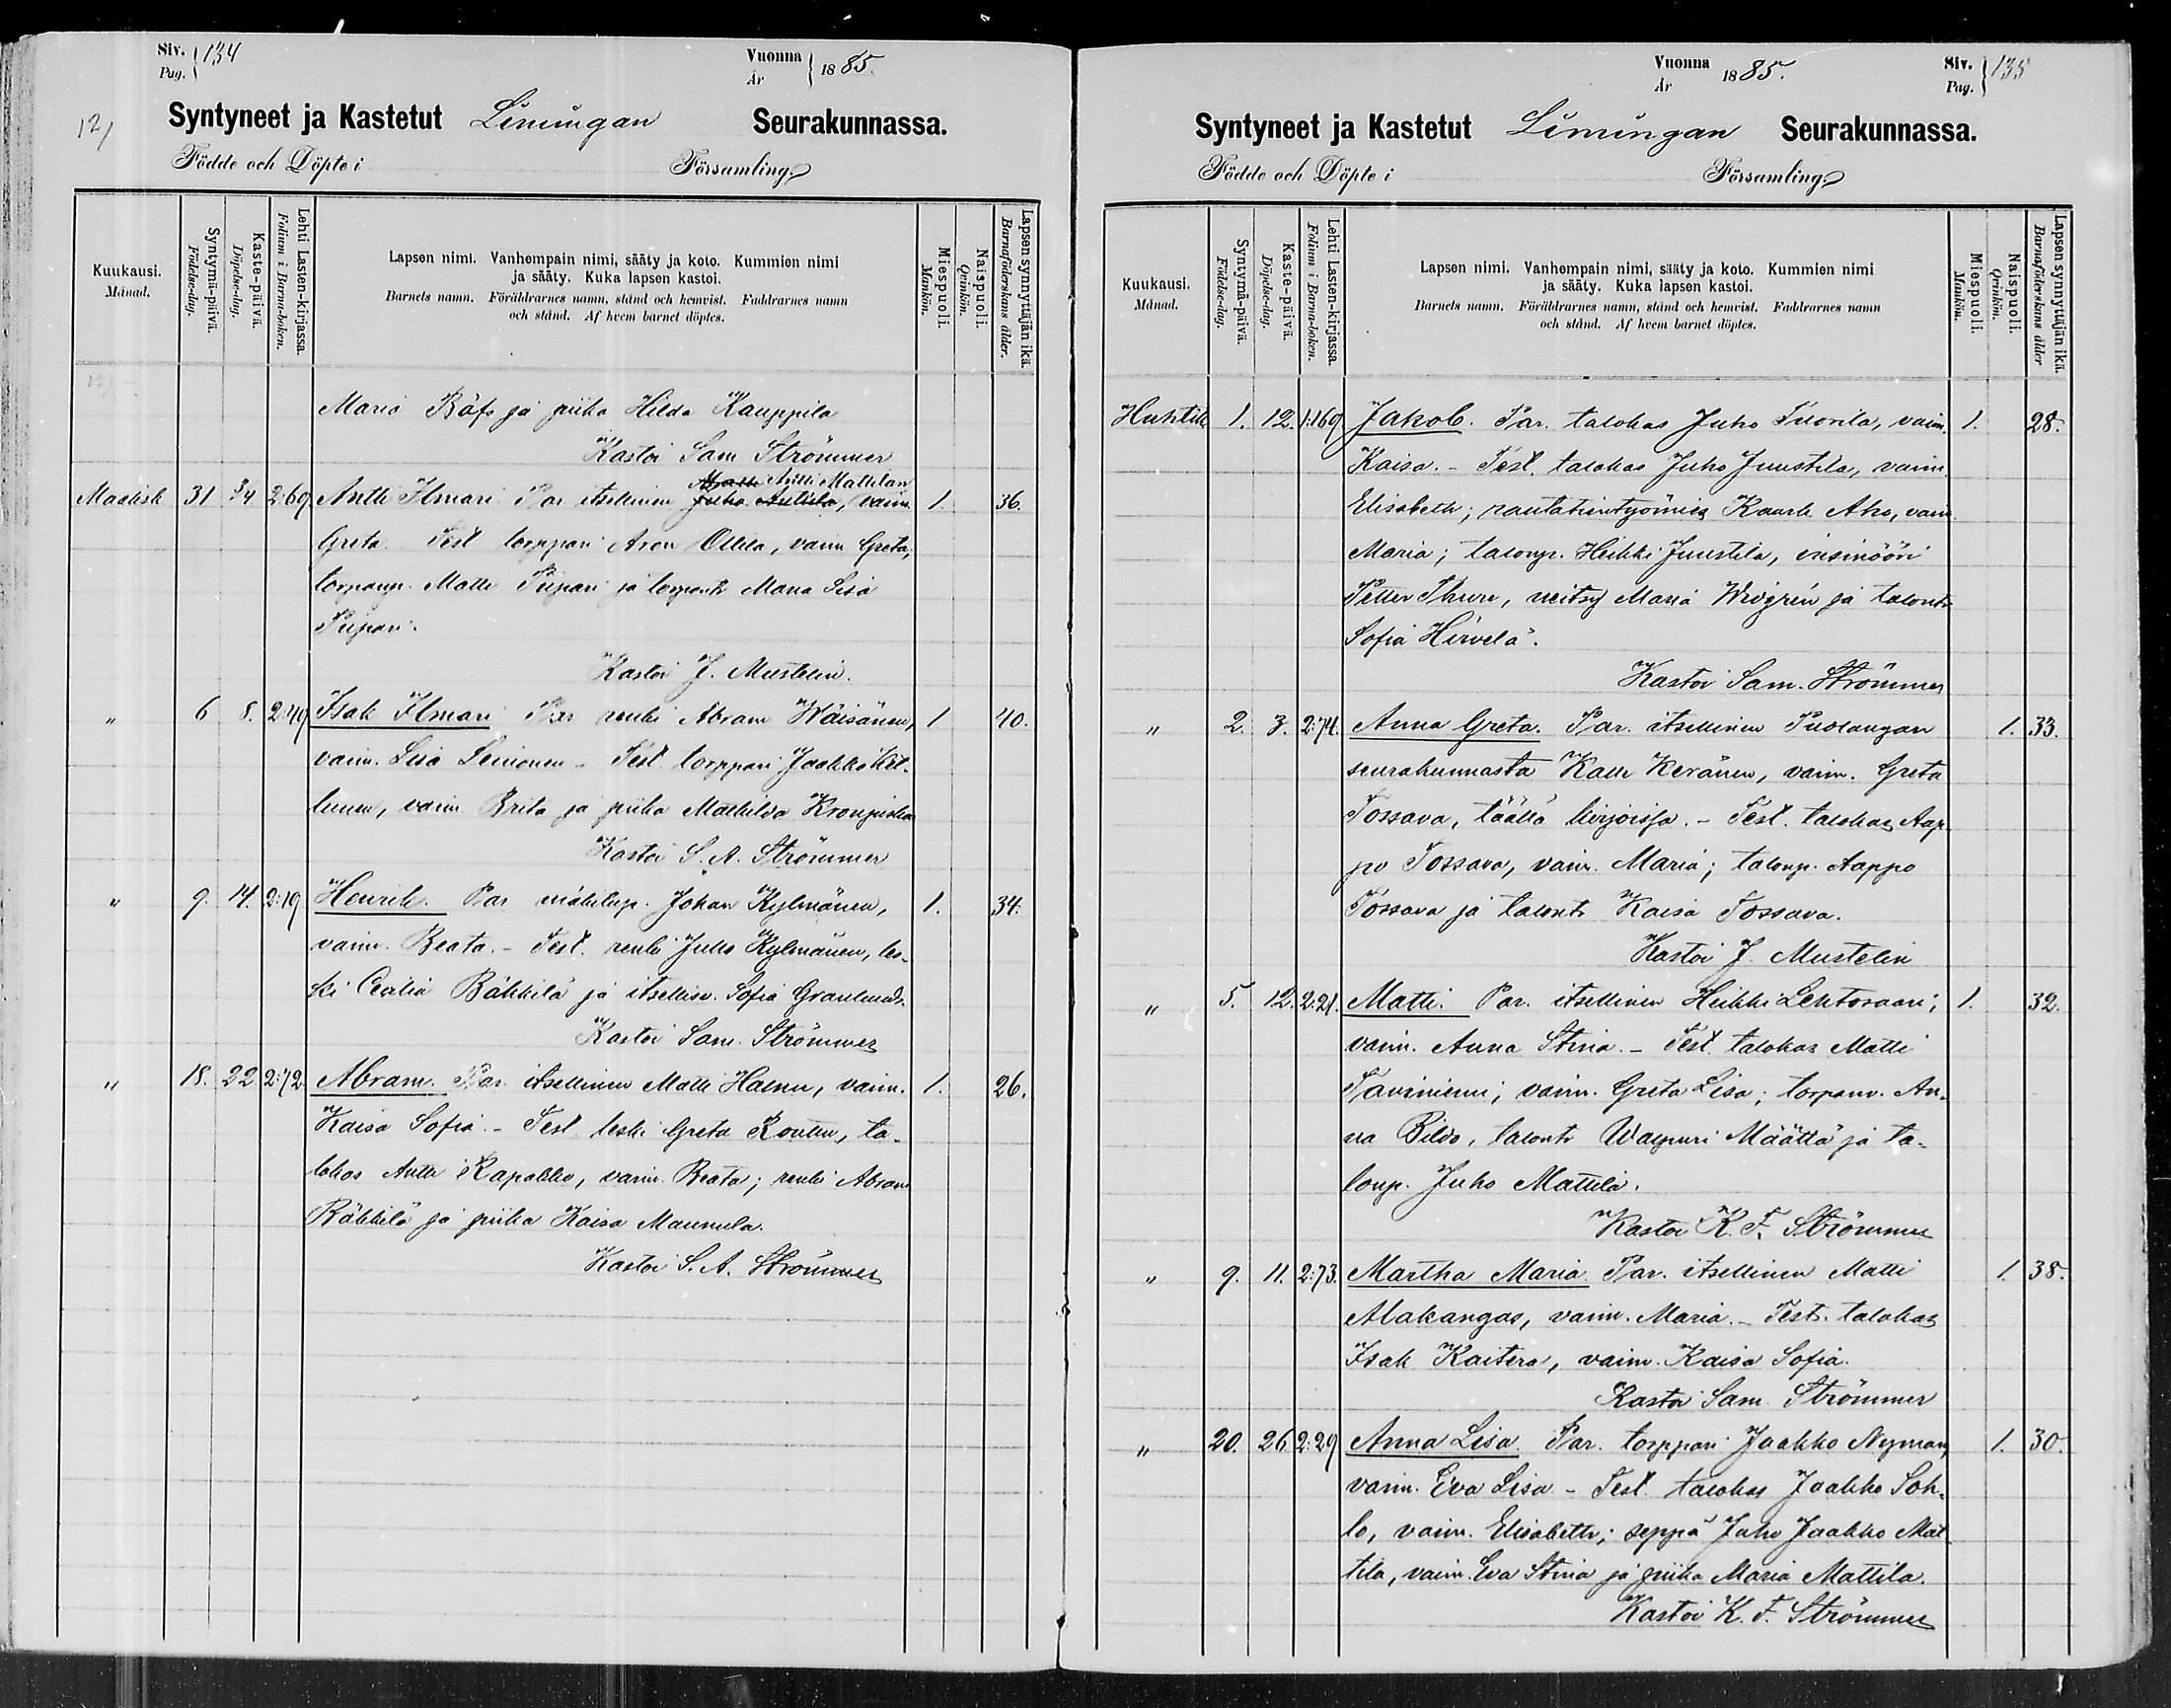 Siv. 134
Pag.
Vuonna 1885.
År
12/
Syntyneet ja Kastetut Limingan Seurakunnassa.
Födde och Döpte i Församling.
Kuukausi.
Månad.
Syntymä-päivä.
Födelse-dag.
Kaste-päivä.
Döpelse-dag.
Lehti Lasten-kirjassa.
Folium i Barna-boken.
Lapsen nimi. Vanhempain nimi, sääty ja koto. Kummien nimi
ja sääty. Kuka lapsen kastoi.
Barnets namn. Föräldrarnes namn, stånd och hemvist. Faddrarnes namn
och stånd. Af hvem barnet döptes.
Miespuoli.
Mankön.
Naispuoli.
Qvinkön.
Lapsen synnyttäjän ikä.
Barnaföderskans ålder.
Maria Räf ja piika Hilda Kauppila
Kastoi Sam Strömmer
Antti Mattilan
Maalisk 31 3/4 2:69 Antti Ilmari Par itsellinen Juho Anttila, vaim. 1. 36.
Greta. Test torppari Aron Ollila, vaim Greta,
torparip. Matti Piipari ja torpart. Maria Lisa
Piipari.
Kastoi J. Mustelin.
" 6 8. 2:49 Isak Ilmari Par renki Abram Wäisänen, 1 40.
vaim. Lisa Leinonen - Test. torppari Jaakko Kel-
lunen, vaim Brita ja piika Mathilda
Kastoi S. A. Strömmer
" 9. 14. 2:19 Henrik. Par mäkitup. Johan Kylmänen, 1. 34.
vaim. Beata. - Test. renki Juho Kylmänen, les-
ki Cecilia Räkkilä ja itsellisv. Sofia Granlund.
Kastoi Sam. Strömmer
" 18. 22 2:72. Abram. Par. itsellinen Matti Halme, vaim. 1. 26.
Kaisa Sofia. - Test leski Greta Routtu, ta-
lokas Antti Rapakko, vaim. Beata; renki Abram
Räkkilä ja piika Kaisa Maunula.
Kastoi S. A. Strömmer
Vuonna 1885.
År
Siv. 135
Pag.
Syntyneet ja Kastetut Limingan Seurakunnassa.
Födde och Döpte i Församling.
Kuukausi.
Månad.
Syntymä-päivä.
Födelse-dag.
Kaste-päivä.
Döpelse-dag.
Lehti Lasten-kirjassa.
Folium i Barna-boken.
Lapsen nimi. Vanhempain nimi, sääty ja koto. Kummien nimi
ja sääty. Kuka lapsen kastoi.
Barnets namn. Föräldrarnes namn, stånd och hemvist. Faddrarnes namn
och stånd. Af hvem barnet döptes.
Miespuoli.
Mankön.
Naispuoli.
Qvinkön.
Lapsen synnyttäjän ikä.
Barnaföderskans ålder
Huhtik 1. 12. 1:169 Jakob. Par. talokas Juho Tuorila, vaim. 1. 28.
Kaisa. - Test. talokas Juho Juustila, vaim.
Elisabeth; rautatientyömies Kaarle Aho, vaim.
Maria; talonp. Heikki Juustila, insinööri
Petter Thure, neitsy Maria Widgrén ja talont.
Sofia Hirvelä.
Kastoi Sam. Strömmer
" 2. 3. 2:74. Anna Greta. Par. itsellinen Puolangan 1. 33.
seurakunnasta Kalle Keränen, vaim. Greta
Tossava, täällä kirjoissa. - Test. talokas Aap-
po Tossava, vaim. Maria; talonp. Aappo
Tossava ja talont. Kaisa Tossava.
Kastoi J. Mustelin
" 5. 12. 2:21. Matti. Par. itsellinen Heikki Lehtosaari, 1. 32.
vaim. Anna Stina. - Test. talokas Matti
Taviniemi, vaim. Greta Lisa; torpanv. An-
na Bildo, talont. Walpuri Määttä ja ta-
lonp. Juho Mattila.
Kastoi K. F. Strömmer
" 9. 11. 2:73. Martha Maria. Par. itsellinen Matti 1. 38.
Alakangas, vaim. Maria. - Test. talokas
Isak Kaitera, vaim. Kaisa Sofia.
Kastoi Sam Strömmer
" 20. 26 2:29 Anna Lisa. Par. torppari Jaakko Nyman, 1. 30.
vaim. Eva Lisa - Test. talokas Jaakko Soh-
lo, vaim. Elisabeth; seppä Juho Jaakko Mat-
tila, vaim. Eva Stina ja piika Maria Mattila.
Kastoi K. F. Strömmer